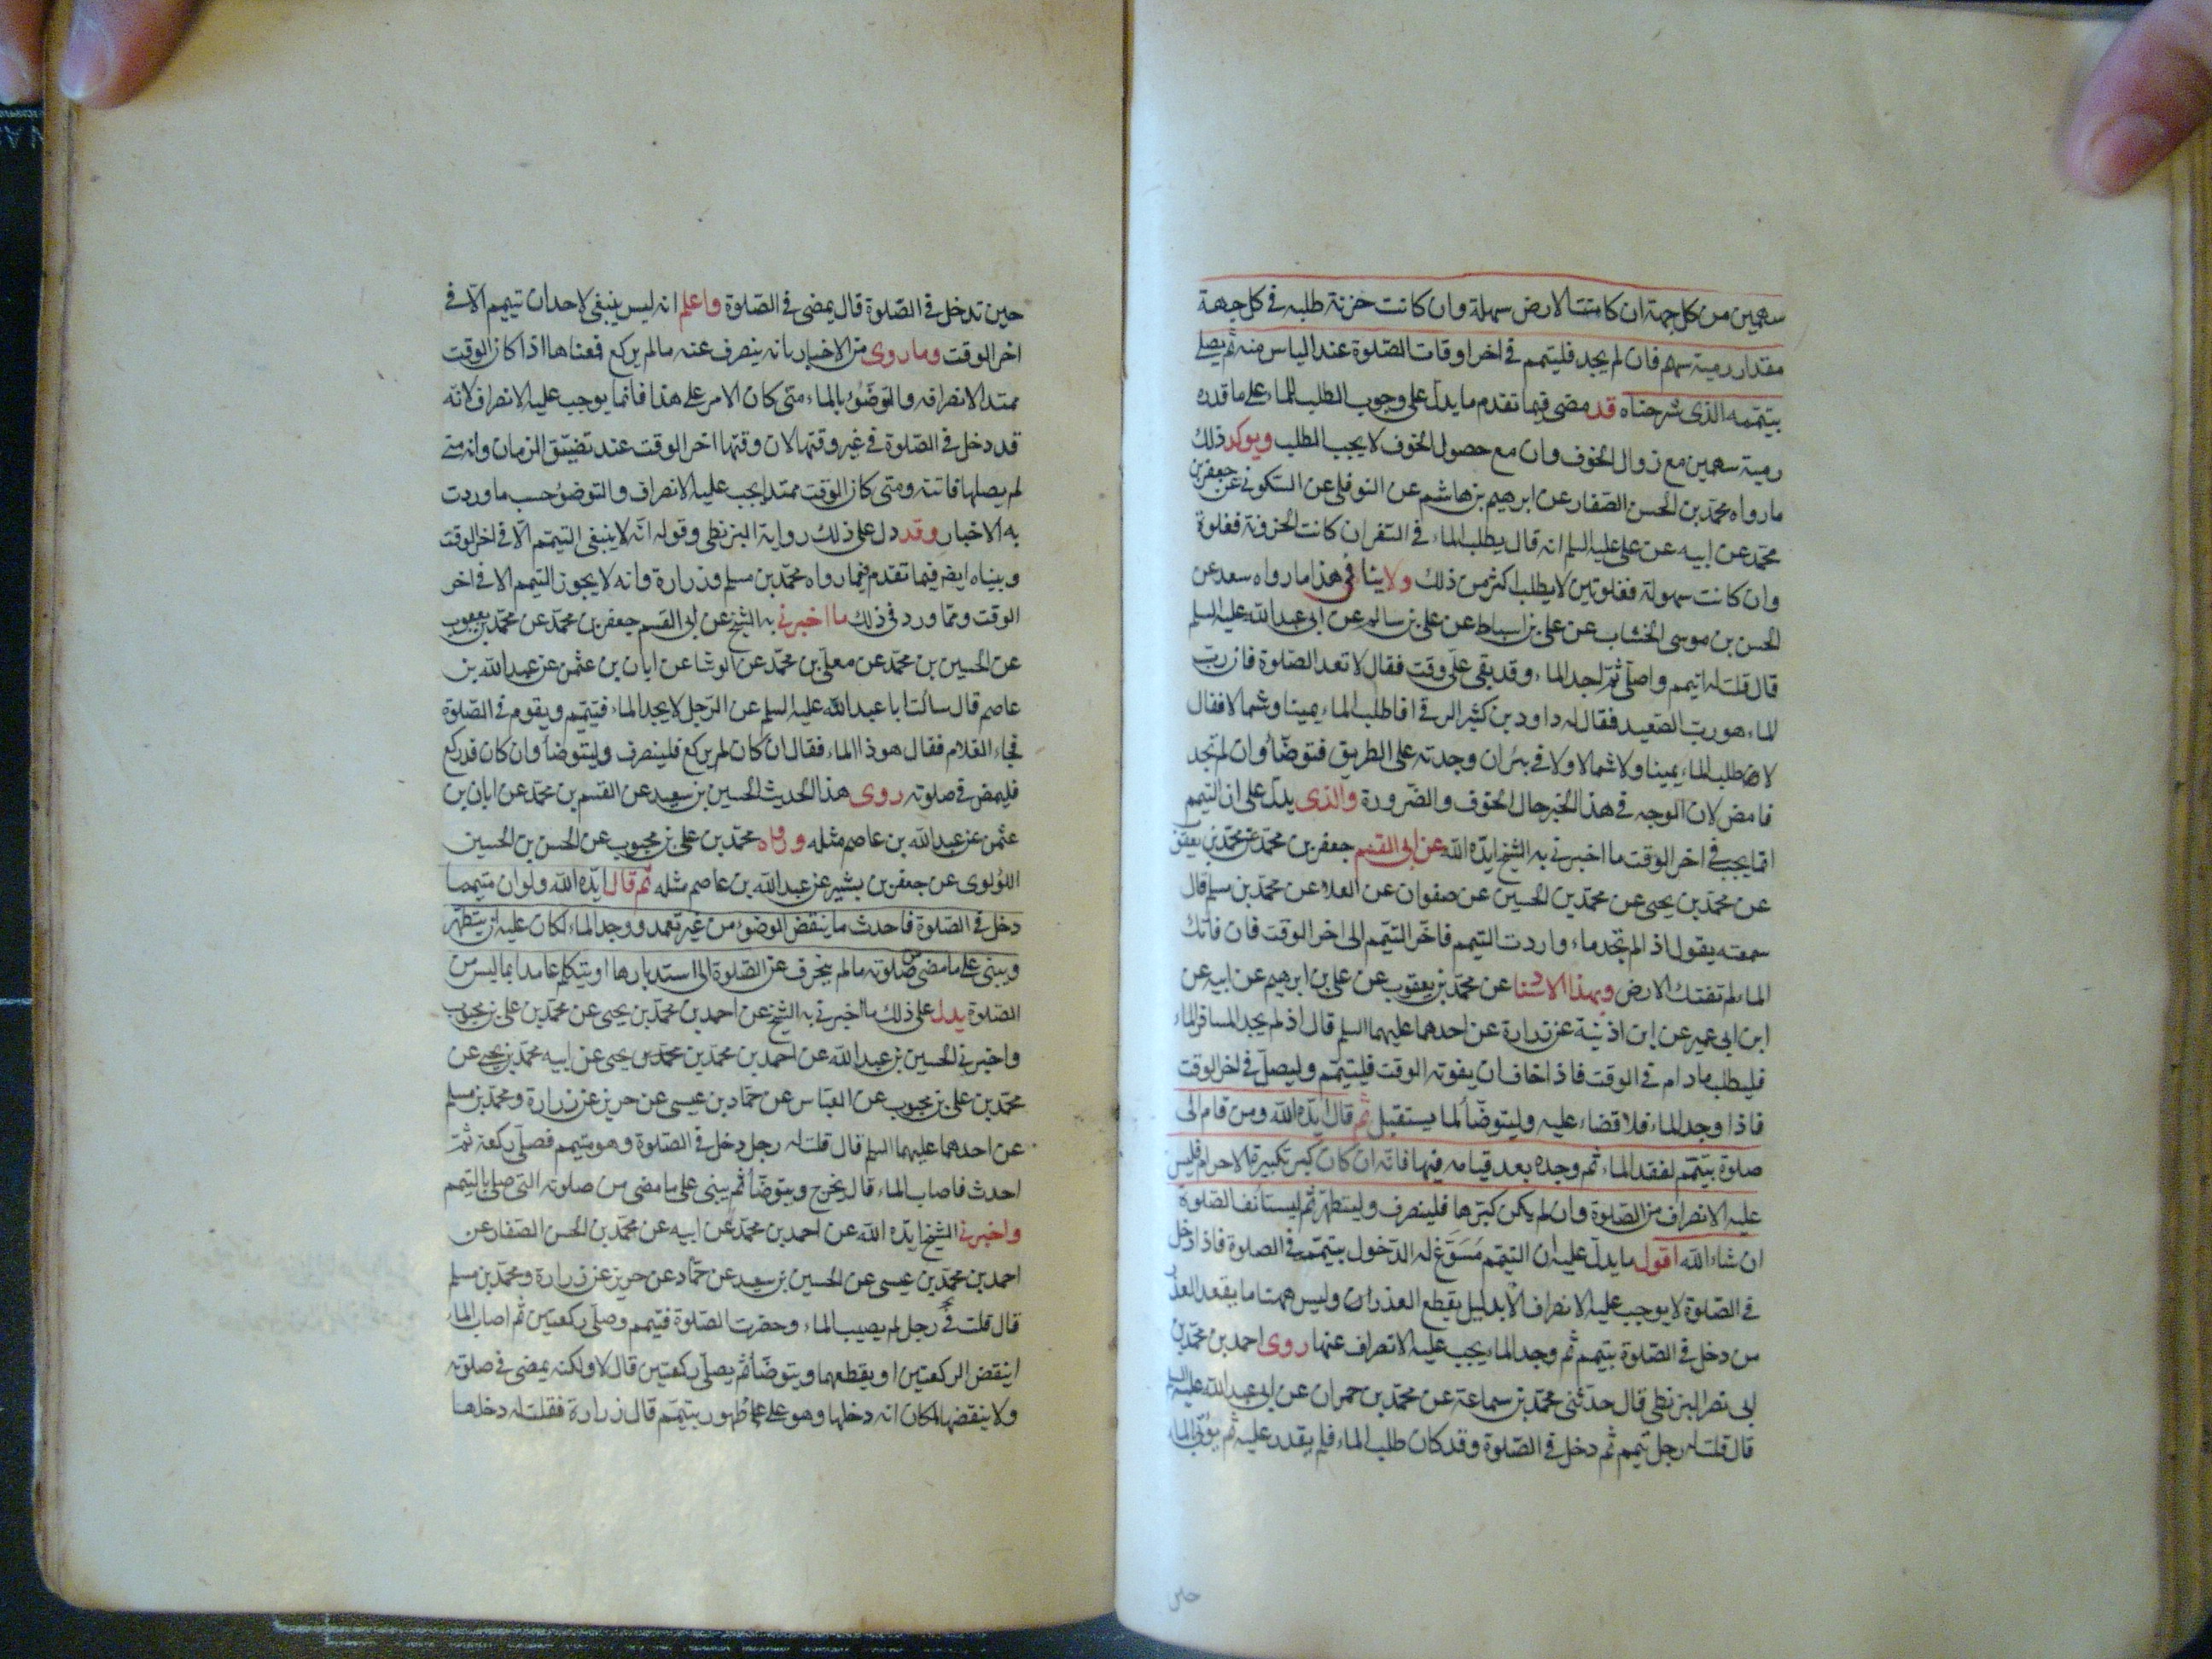 سهمين من كل جهة ان كانت الارض سهلة وان كانت حزنة طلبه في كل جهة
مقدار رمية سهم فان لم يجد فليتيمم في اخر اوقات الصلوة عند الياس منه ثم يصلي
بتيممه الذى شرحناه قد مضى فيما تقدم ما يدل على وجوب الطلب للماء على ما قدره
رمية سهمين مع زوال الخوف وان مع حصول الخوف لا يجب الطلب ويوكد ذلك
ما رواه محمد بن الحسن الصفار عن ابرهيم بن هاشم عن النوفلى عن السكونى عن جعفر بن
محمد عن ابيه عن على عليه السلم انه قال يطلب الماء في السفر ان كانت الحزونة فغلوة
وان كانت سهولة فغلوتين لا يطلب اكثر من ذلك ولا ينافى هذا ما رواه سعد عن
الحسن بن موسى الخشاب عن على بن اسباط عن على بن سالم عن ابى عبد الله عليه السلم
قال قلت له اتيمم واصلى ثم اجد الماء وقد بقى على وقت فقال لا تعد الصلوة فان رب
الماء هو رب الصعيد فقال له داود بن كثير الرقى افاطلب الماء يمينا وشمالا فقال
لا تطلب الماء يمينا ولا شمالا ولا في بئر ان وجدته على الطريق فتوضأ وان لم تجد
فامض لان الوجه في هذا الخبر حال الخوف والضرورة والذى يدل على ان التيمم
انما يجب في اخر الوقت ما اخبرنى به الشيخ ايده الله عن ابى القسم جعفر بن محمد عن محمد بن يعقوب
عن محمد بن يحيى عن محمد بن الحسين عن صفوان عن العلا عن محمد بن مسلم قال
سمعته يقول اذ الم تجد ماء واردت التيمم فاخر التيمم الى اخر الوقت فان فاتك
الماء لم تفتك الارض وبهذا الاسنا عن محمد بن يعقوب عن على بن ابرهيم عن ابيه عن
ابن ابى عمير عن ابن اذينة عن زرارة عن احدهما عليهما السلم قال اذ لم يجد المسافر الماء
فليطلب ما دام في الوقت فاذا خاف ان يفوته الوقت فليتيمم وليصل في اخر الوقت
فاذا وجد الماء فلا قضاء عليه وليتوضأ لما يستقبل ثم قال ايده الله ومن قام الى
صلوة بتيمم لفقد الماء ثم وجده بعد قيامه فيها فانه ان كان كبر تكبيرة الاحرام فليس
عليه الانصراف من الصلوة وان لم يكن كبرها فلينصرف وليتطهر ثم ليستانف الصلوة
ان شاء الله اقول ما يدل عليه ان التيمم مسوغ له الدخول بتيممه في الصلوة فاذا دخل
في الصلوة لا يوجب عليه الانصراف الا بدليل يقطع العذر وليس ههنا ما يقطع العذر
من دخل في الصلوة بتيمم ثم وجد الماء يجب عليه الانصراف عنها روى احمد بن محمد بن
ابى نصر البزنطى قال حدثنى محمد بن سماعة عن محمد بن حمران عن ابى عبد الله عليه السلم
قال قلت له رجل تيمم ثم دخل في الصلوة وقد كان طلب الماء فلم يقدر عليه ثم يؤتى الماء
حين
حين تدخل في الصلوة قال يمضى في الصلوة واعلم انه ليس ينبغى لاحد ان تييمم الا في
اخر الوقت وما روى من الاخبار بانه ينصرف عنه ما لم يركع فمعناها اذا كان الوقت
ممتد الانصرافه والتوضؤ بالماء متى كان الامر على هذا فانما يوجب عليه الانصراف لانه
قد دخل في الصلوة في غير وقتها لان وقتها اخر الوقت عند تضيق الزمان وانه متى
لم يصلها فاتته ومتى كان الوقت ممتد ايجب عليه الانصراف والتوضؤ حسب ما وردت
به الاخبار وقد دل على ذلك رواية البزنطى وقوله انه لا ينبغى التيمم الا في اخر الوقت
وبيناه ايضا فيما تقدم فيما رواه محمد بن مسلم وزرارة وانه لا يجوز التيمم الا في اخر
الوقت ومما ورد في ذلك ما اخبرنى به الشيخ عن ابى القسم جعفر بن محمد عن محمد بن يعقوب
عن الحسين بن محمد عن معلى بن محمد عن الوشا عن ابان بن عثمن عن عبد الله بن
عاصم قال سألت ابا عبد الله عليه السلم عن الرجل لا يجد الماء فيتيمم ويقوم في الصلوة
فجاء الغلام فقال هوذا الماء فقال ان كان لم يركع فلينصرف وليتوضأ وان كان قد ركع
فليمض في صلوته روى هذا الحديث الحسين بن سعيد عن القسم بن محمد عن ابان بن
عثمن عن عبد الله بن عاصم مثله ورواه محمد بن على بن محبوب عن الحسن بن الحسين
اللؤلوى عن جعفر بن بشير عن عبد الله بن عاصم مثله ثم قال ايده الله ولو ان متيمما
دخل في الصلوة فاحدث ما ينقض الوضوء من غير تعمد ووجد الماء لكان عليه ان يتطهر
ويبنى على ما مضى من صلوته ما لم ينحرف عن الصلوة الى استدبارها او يتكلم عامدا بما ليس من
الصلوة يدل على ذلك ما اخبرنى به الشيخ عن احمد بن محمد بن يحيى عن محمد بن على بن محبوب
واخبرنى الحسين بن عبد الله عن احمد بن محمد بن يحيى عن ابيه محمد بن يحيى عن
محمد بن على بن محبوب عن العباس عن حماد بن عيسى عن حريز عن زرارة ومحمد بن مسلم
عن احدهما عليهما السلم قال قلت له رجل دخل في الصلوة وهو متيمم فصلى ركعة ثم
احدث فاصاب الماء قال يخرج ويتوضأ ثم يبنى على ما مضى من صلوته التى صلى بالتيمم
واخبرنى الشيخ ايده الله عن احمد بن محمد عن ابيه عن محمد بن الحسن الصفار عن
احمد بن محمد بن عيسى عن الحسين بن سعيد عن حماد عن حريز عن زرارة ومحمد بن مسلم
قال قلت في رجل لم يصيب الماء وحضرت الصلوة فتيمم وصلى ركعتين ثم اصاب الماء
اينقض الركعتين او يقطعهما ويتوضأ ثم يصلى ركعتين قال لا ولكنه يمضى في صلوته
ولا ينقضها لمكان انه دخلها وهو على طهور بتيمم قال زرارة فقلت له دخلها